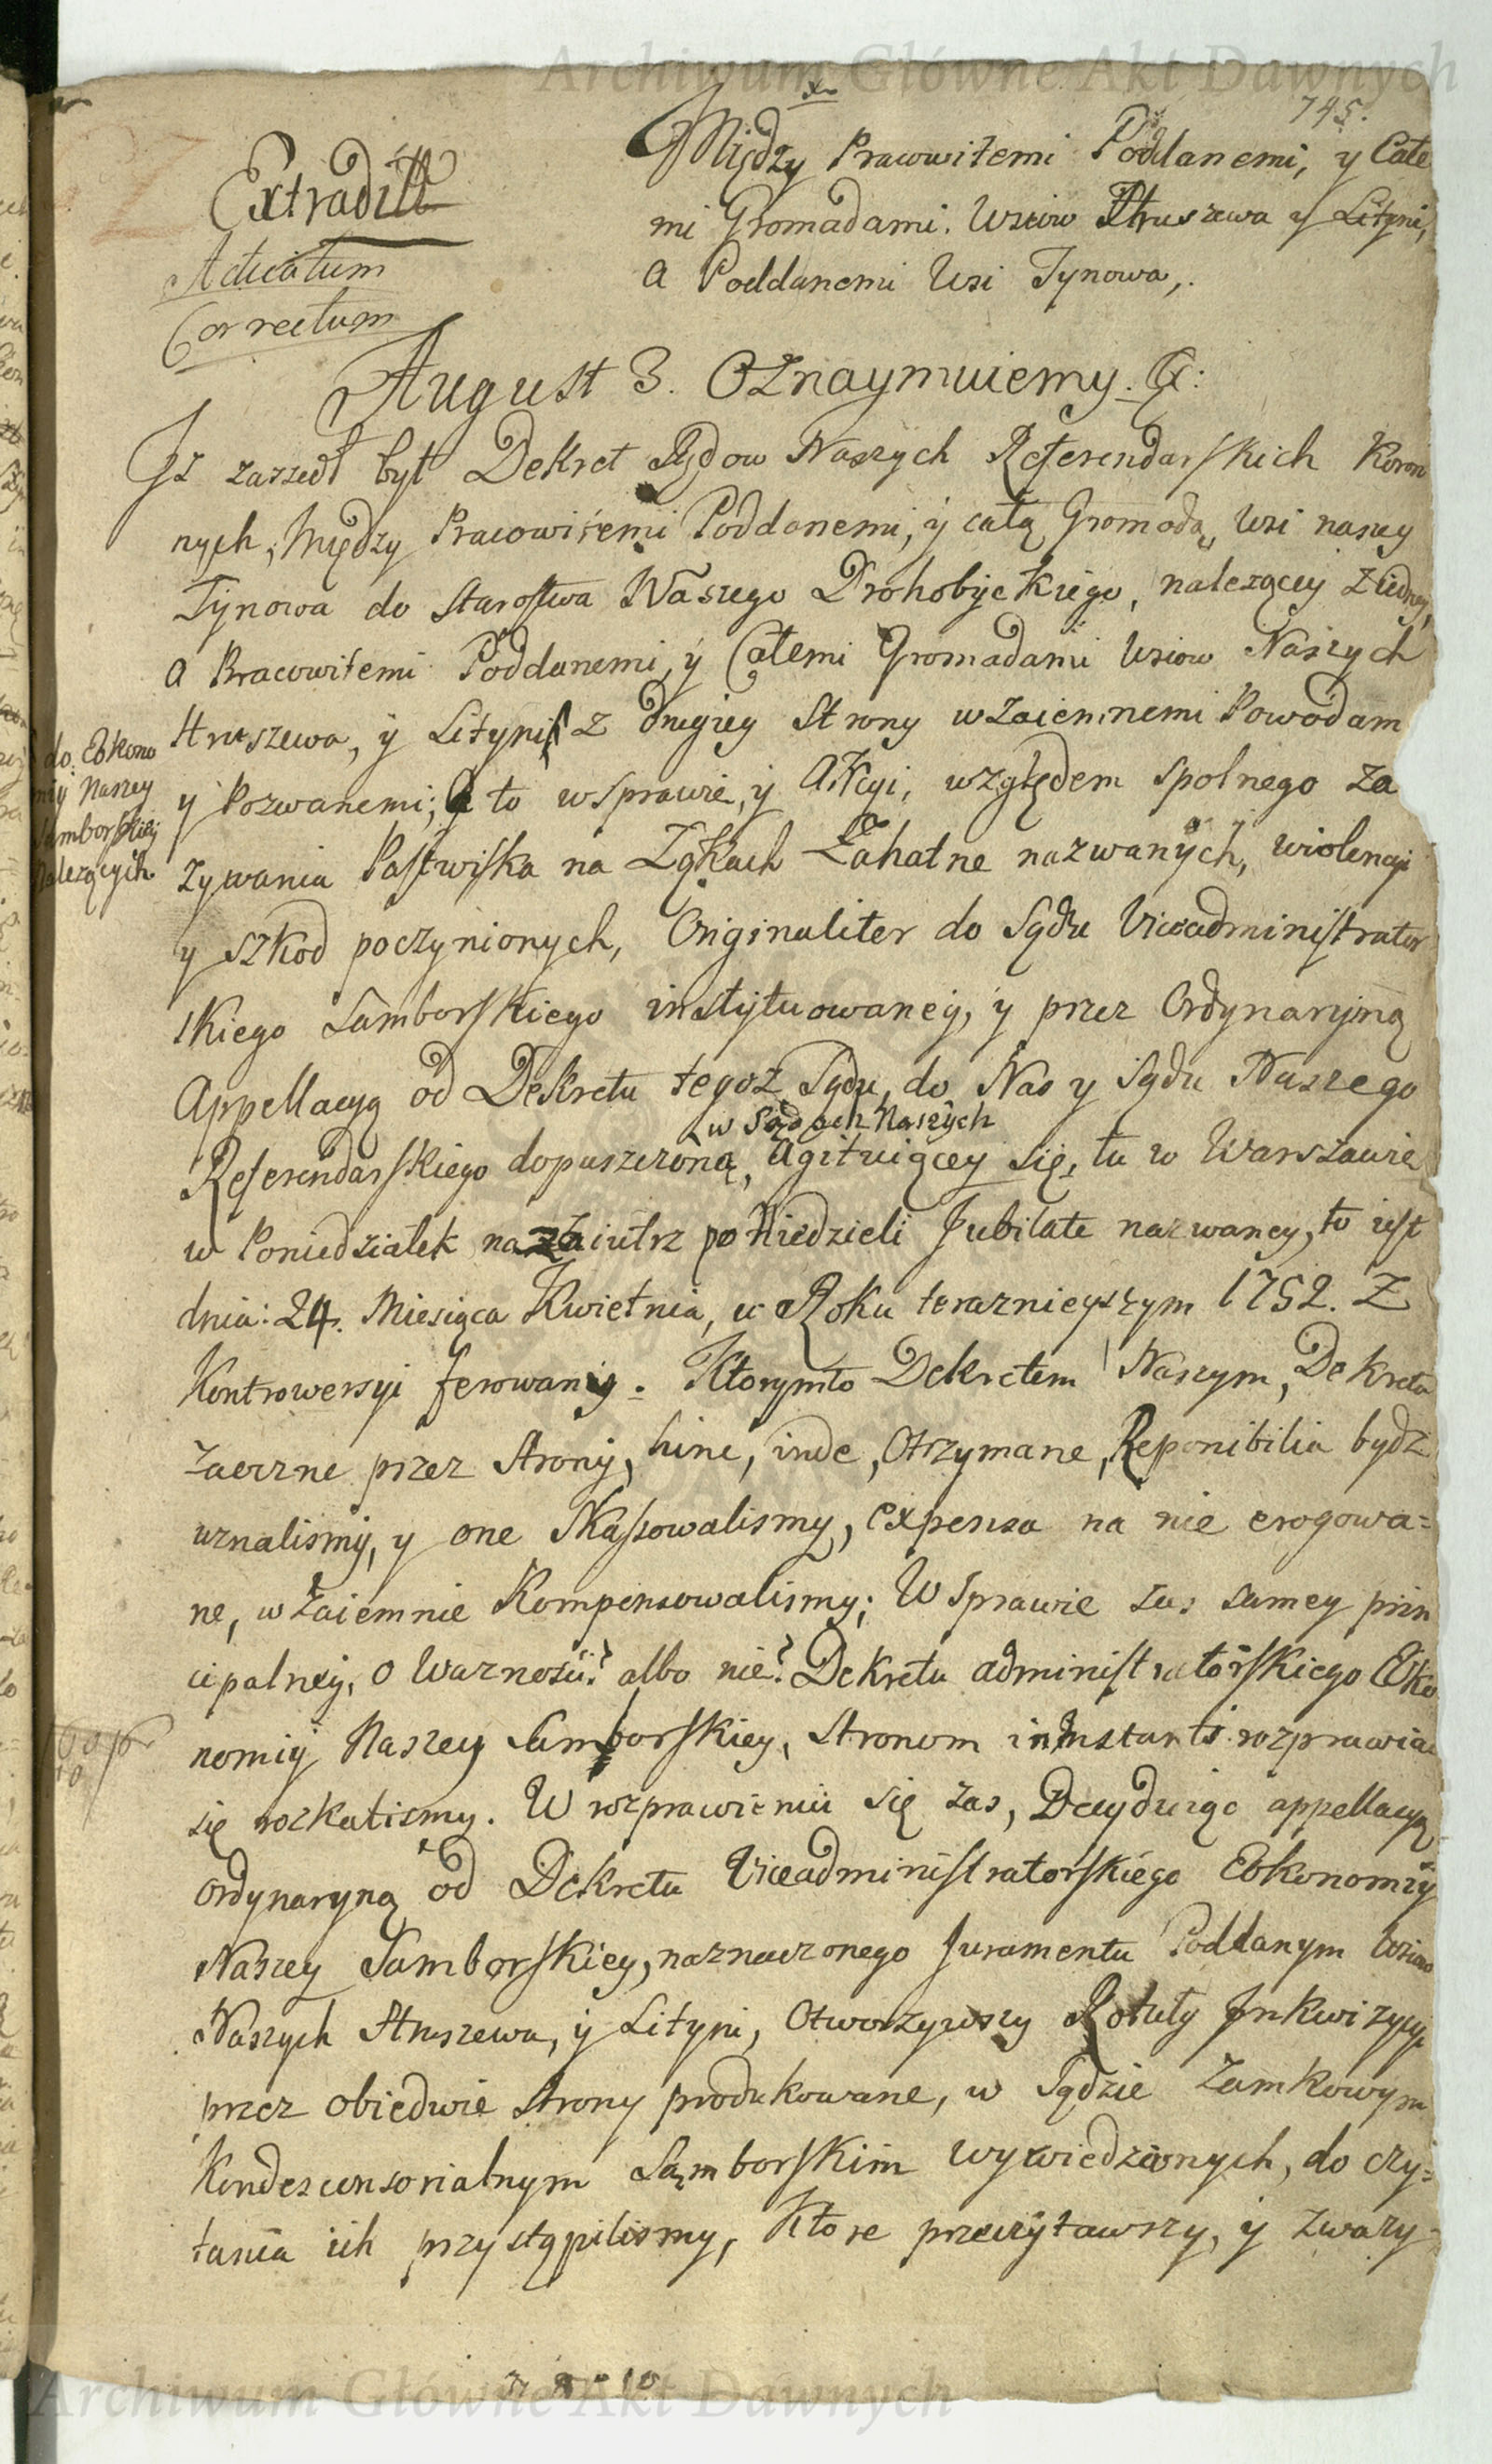 Archiwum Główne Akt Dawnych
745.
Extradítt
Adlicatum
Correctum
Między Pracowitemi Poddanemi, y Całe
mi Gromadami. Wsiow Hruszewa y Lityni,
a Poddanemi Wsi Tynowa,.
August 3. Oznaymuiemy. &:
Jż zaszedł był Dekret Sądow Naszych Referendarskich Koron
nych, Między Pracowitemi Poddanemi, y całą Gromadą, Wsi naszey
Tynowa do Starostwa Naszego Drohobyckiego, należącey z iedney,
a Pracowitemi Poddanemi, y Całemi Gromadami Wsiow Naszych
Hruszewa, y Lityni z drugiey Strony wzaiemnemi Powodam
do Eokono
mij Naszey
Samborskiey
należących
y Pozwanemi; a to w sprawie, y Akcyi, względem spolnego za
żywania Pastwiska na Łąkach Zahatne nazwanych, wiolencyi
y szkod poczynionych, Originaliter do Sądu Viceadministrator
skiego Samborskiego instytuowaney, y przez Ordynaryiną
Appellacyą od Dekretu tegoż Sądu, do Nas y Sądu Naszego
w Sądach Naszych
Referendarskiego dopuszczoną, agituiącey się, tu w Warszawie
w Poniedziałek nazaiutrz po Niedzieli Jubilate nazwaney, to iest
dnia: 24. Miesiąca Kwietnia, w Roku teraznieyszym 1752. Z
Kontrowersyi ferowany. Ktorymto Dekretem Naszym, Dekreta
zaoczne przez Strony, hinc, inde, Otrzymane, Reponibilia bydz
uznalismy, y one skassowalismy, expensa na nie erogowa=
ne, wzaiemnie kompensowalismy; W sprawie zas samey prin
cipalney, o Waznosci? albo nie? Dekretu administratorskiego Eko
nomij Naszey Samborskiey, Stronom in instanti rozprawiac
się roskazalismy. W rozprawieniu się zas, Decyduiąc appellacyą
Ordynaryną od Dekretu Viceadministratorskiego Eokonomij
Naszey Samborskiey, naznaczonego Juramentu Poddanym Wsiow
Naszych Hruszewa, y Lityni, Otworzywszy Rotuły Inkwizycyi
przez obiedwie strony produkowane, w Sądzie Zamkowym
Kondescensorialnym Samborskim wywiedzionych, do czy=
tania ich przystąpilismy, Ktore przeczytawszy, y zważy-
Archiwum Główne Akt Dawnych